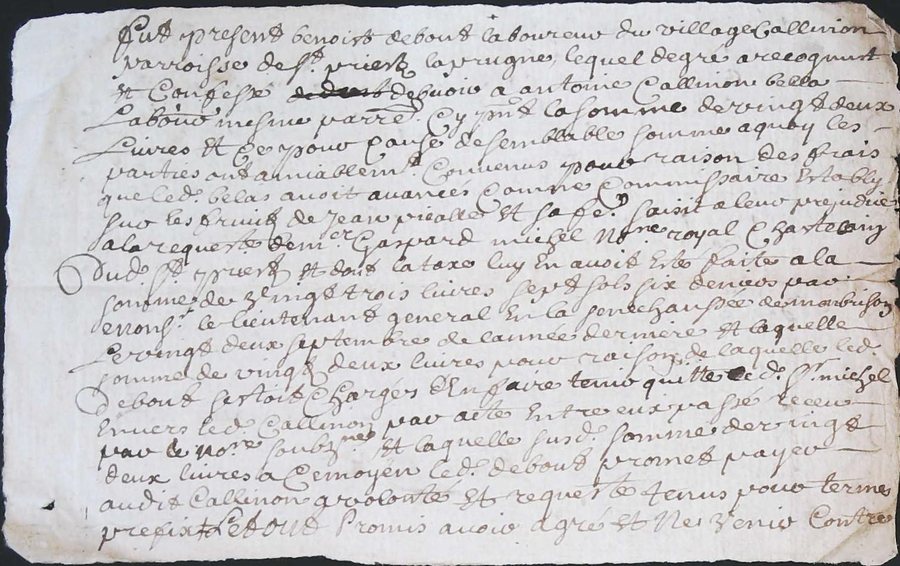 fut present benoist debout laboureur du village Callinon
parroisse de st priest laprugne lequel de gré a recognut
et Confessé debvoir a antoine Callinon bella
Labour mesme parre. Cy pnt la somme de vingt deux
Livres et Ce pour Cause de semblable somme a quoy les
parties ont amiablemt. Convenus pour raison des frais
que led. bellas avoit avancés Comme Commissaire estably
sur les fruits de Jean et sa fe. saisit a leur prejudice
a la requeste de mr. Gaspard michel Nore royal Chastelain
Dud. st. priest et dont la taxe luy En avoit esté faite a la
somme de vingt trois livres sept sols six deniers par
le lieutenant general En la senechaussée de montbrison
Le vingt deux septembre de lannée derniere et laquelle
somme de vingt deux livres pour raison de laquelle led.
Debout sestoit Chargés d'En faire tenir quitte led. sr. michel
Envers led. Callinon par acte Entre eux passé receu
par le nore soubzne et laquelle susd. somme de vingt
deux livres a Cemoyen led. debout promet payer
audit Callinon a volonté et requeste tenus pour termes
prefixt Promis avoir agré et Ne venir Contre